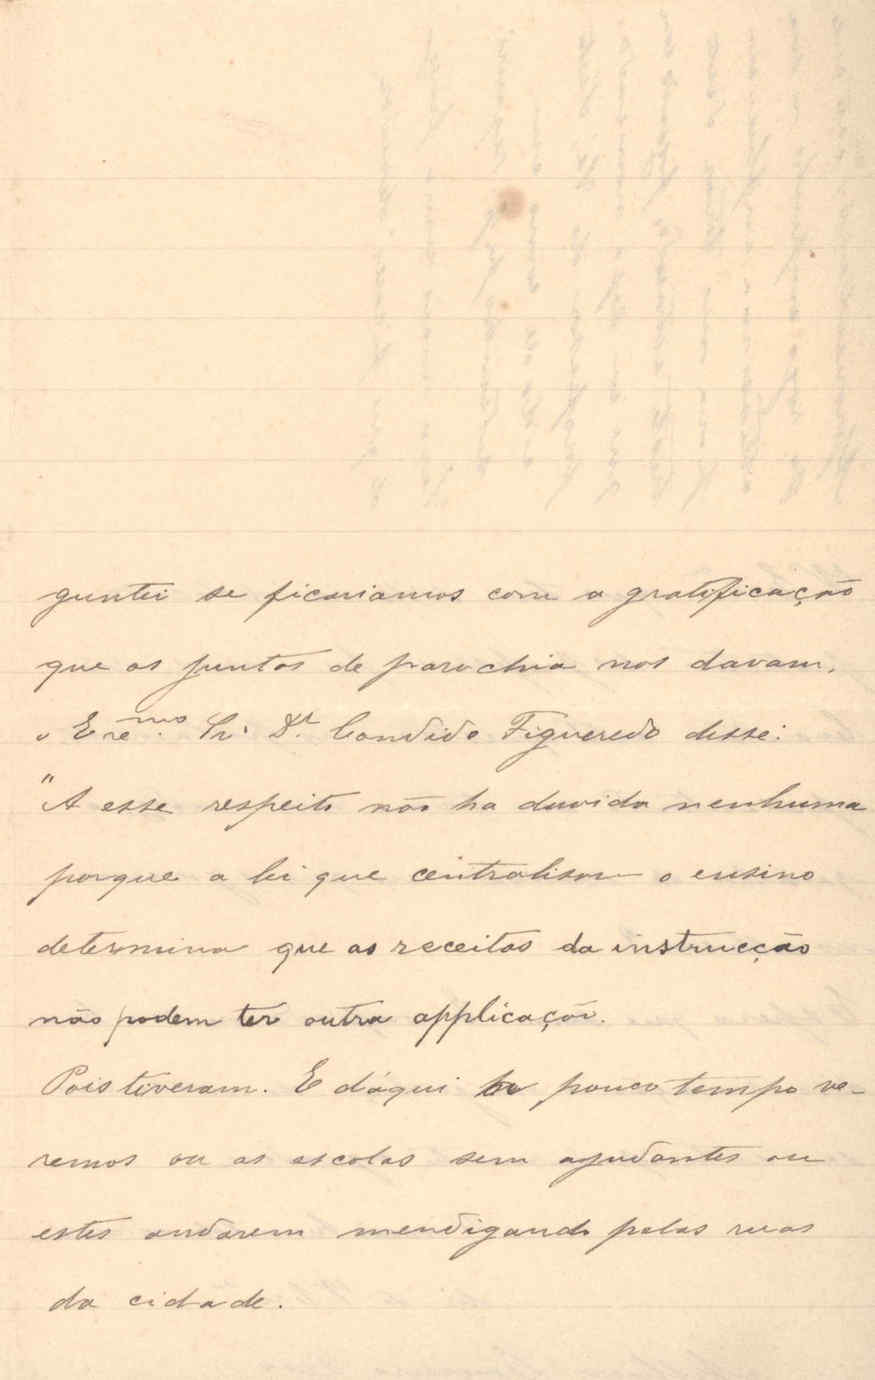 guntei se ficariamos com a gratificação
que as juntas de parochia nos davam,
o Exmo. Sr. Dr. Candido Figueredo disse:
"A esse respeito não ha duvida nenhuma
porque a lei que centralisou o ensino
determina que as receitas da instrucção
não podem ter outra applicação.
Pois tiveram. E d'aqui ha pouco tempo ve-
remos ou as escolas sem ajudantes ou
estes andarem mendigando pelas ruas
da cidade.